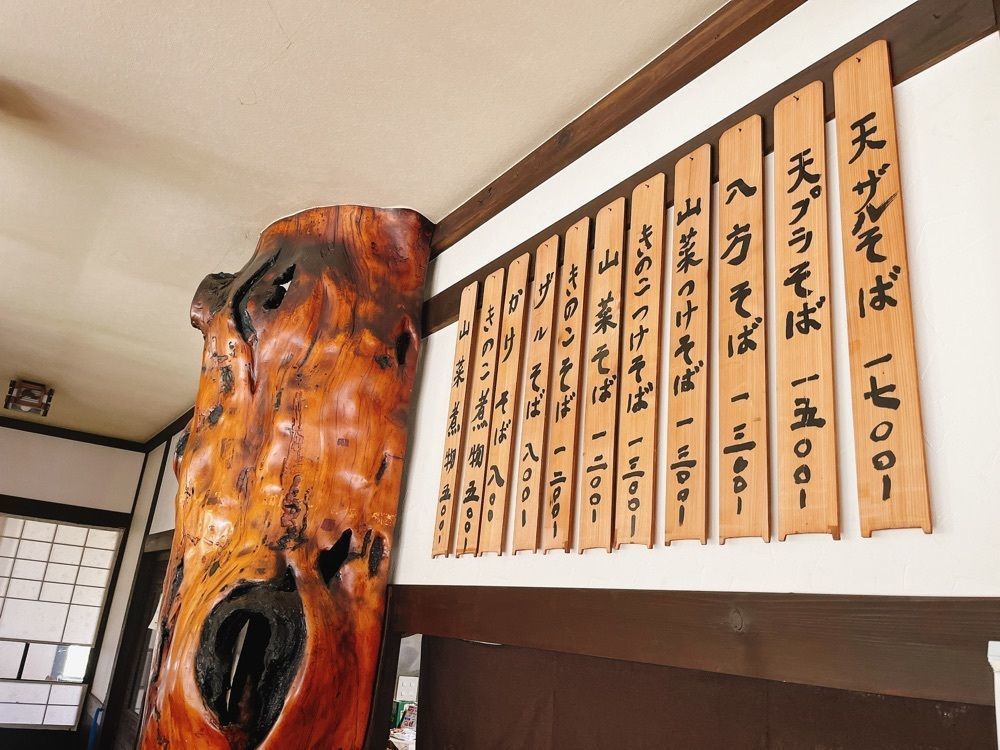 天ザルそば 一七〇〇ー
天プラそば 一五〇〇ー
八方そば 一三〇〇ー
山菜つけそば 一三〇〇ー
きのこつけそば 一三〇〇ー
山菜そば 一二〇〇ー
きのこそば 一二〇〇ー
ザルそば 八〇〇ー
かけそば 八〇〇
きのこ煮物 五〇〇ー
山菜煮物 五〇〇ー